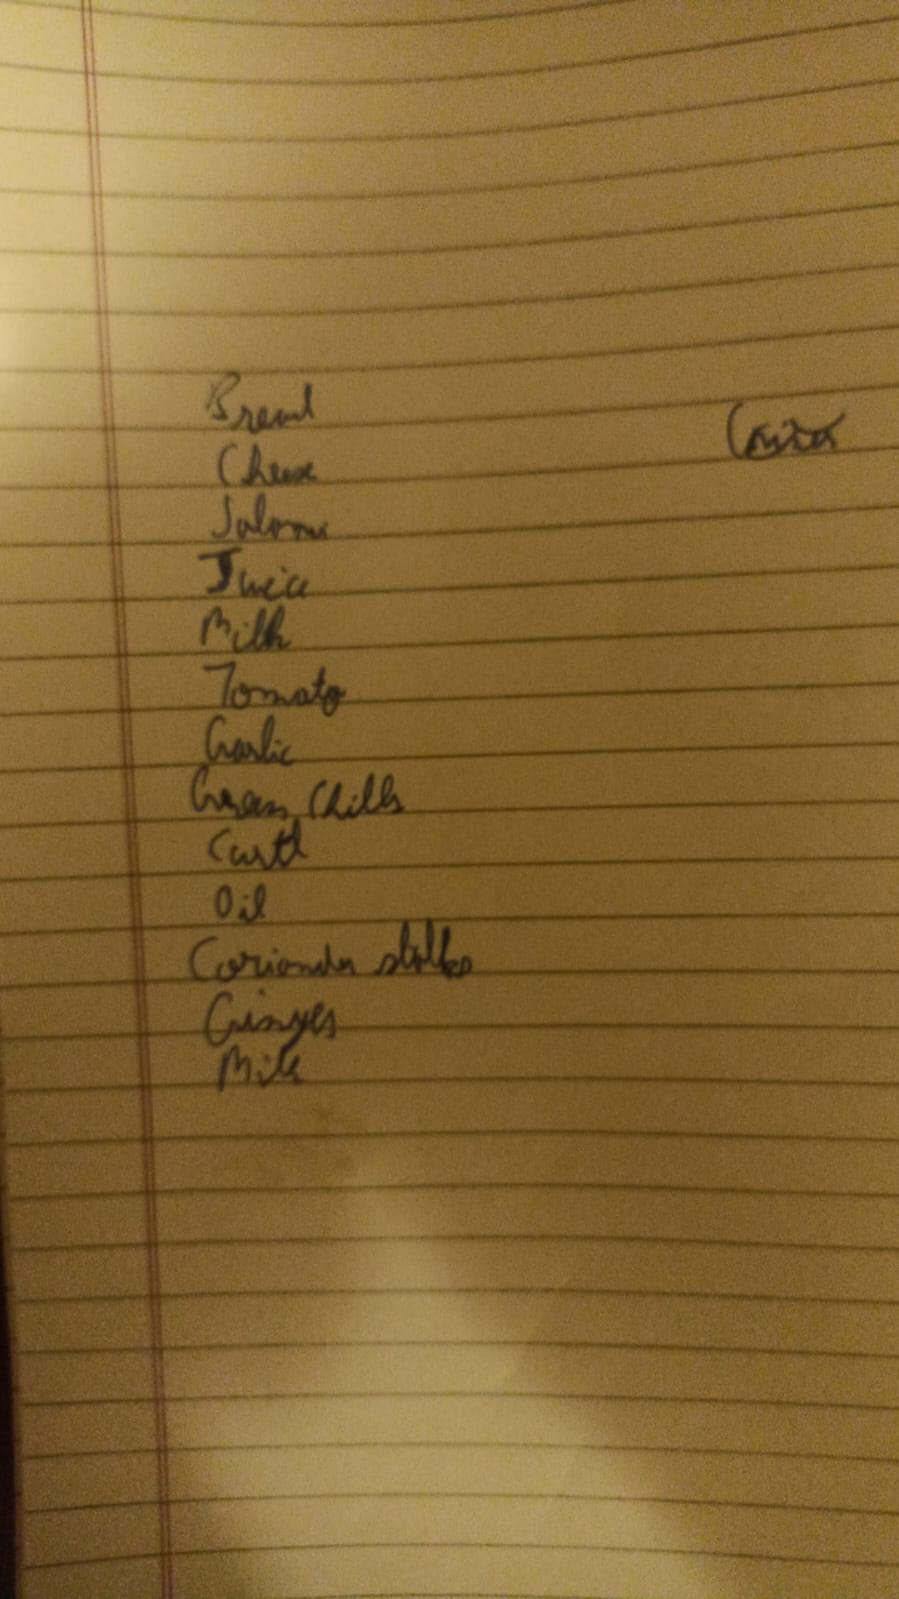 Bread
Cheese
Salami
Juice
Milk
Tomato
Garlic
Green Chills
Curd
Oil
Coriander stalks
Ginger
Milk